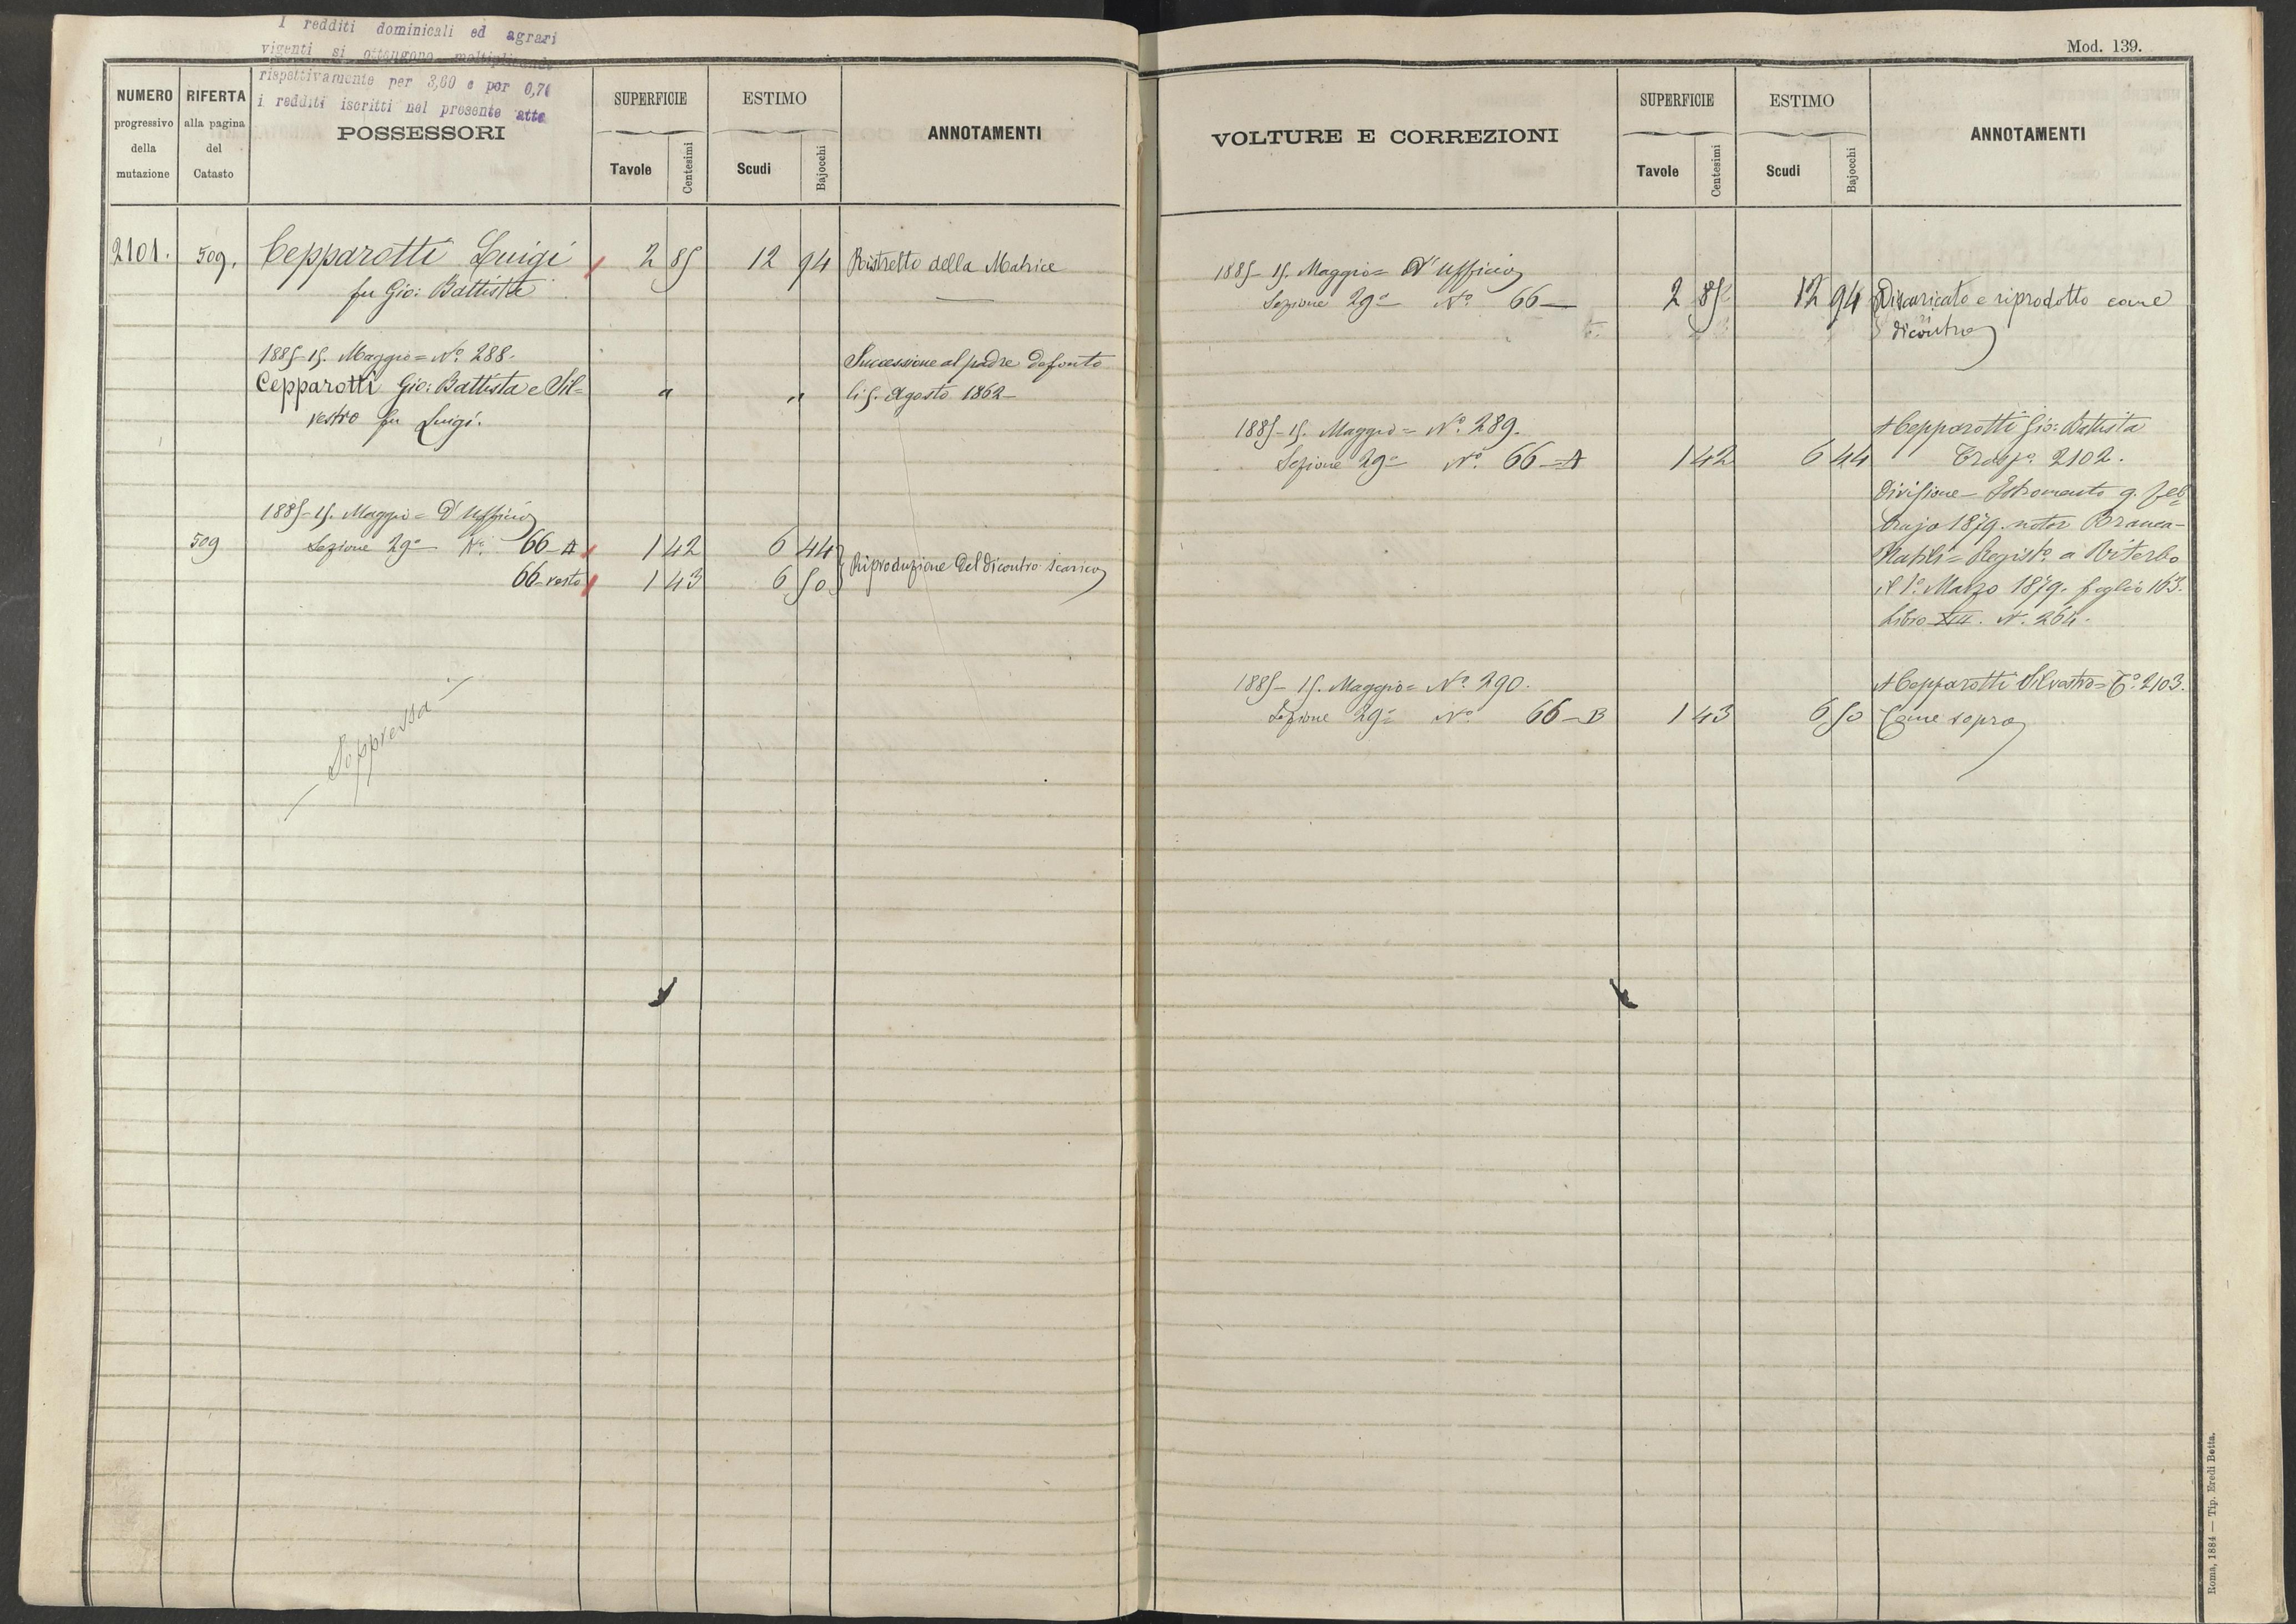 I redditi dominicali ed agrari
vigenti si ottengono moltiplicando
rispettivamente per 3,60 e per 0,76
i redditi iscritti nel presente atto
NUMERO progressivo della mutazione
RIFERTA alla pagina del Catasto
POSSESSORI
SUPERFICIE
Tavole Centesimi
ESTIMO
Scudi Bajocchi
ANNOTAMENTI
2101. 509. Cepparotti Luigi 2 85 12 94 Ristretto della Matrice
fu Gio: Battista
1885-15. Maggio = No. 288. Successione al padre defonto
Cepparotti Gio: Battista e Sil= " " li 5. Agosto 1862-
vestro fu Luigi.
1885-15. Maggio = D'Ufficio
509 Sezione 29a No. 66-A 1 42 6 44 Riproduzione del dicontro scarico
66-resto 1 43 6 50
Soppressa
Mod. 139.
VOLTURE E CORREZIONI
SUPERFICIE
Tavole Centesimi
ESTIMO
Scudi Bajocchi
ANNOTAMENTI
1885-15. Maggio = D'Ufficio
Sezione 29a No. 66- 2 85 12 94 Discaricato e riprodotto come
dicontro
1885-15. Maggio = No. 289. A Cepparotti Gio: Battista
Sezione 29a No. 66=A 1 42 6 44 Traspo. 2102.
Divisione - Istromento 9. feb=
brajo 1879. notar Branca-
= Registo. a Viterbo
il 1o. Marzo 1879. foglio 163.
Libro N. 264.
1885- 15. Maggio = No. 290. A Cepparotti Silvestro = To. 2103.
Sezione 29a No. 66-B 1 43 6 50 Come sopra
Roma, 1884 — Tip. Eredi Botta.